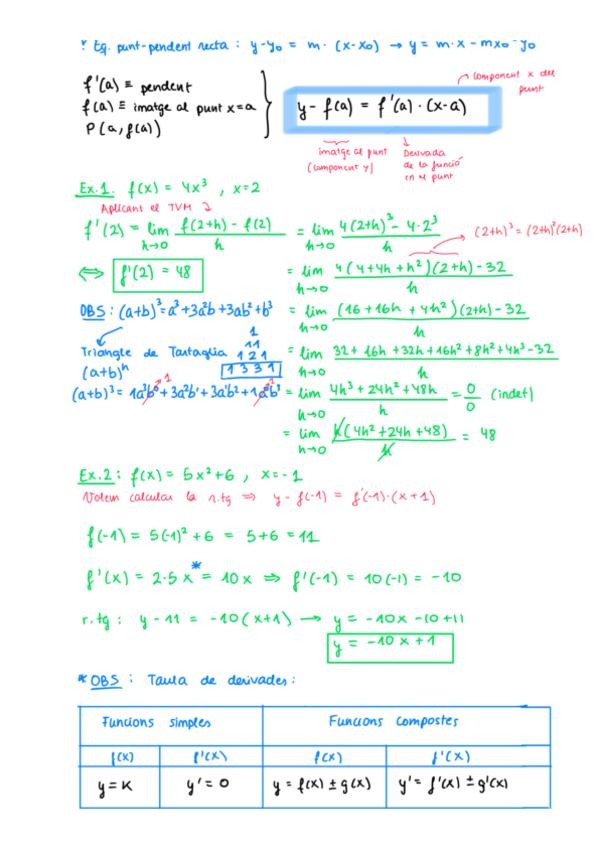 * Eq. punt-pendent recta : y-y₀ = m · (x-x₀) → y = m·x - mx₀ - y₀
f'(a) ≡ pendent
f(a) ≡ imatge al punt x=a
P(a, f(a))
y - f(a) = f'(a) · (x-a)
component x del punt
imatge al punt (component y)
Derivada de la funció en el punt
Ex.1: f(x) = 4x³ , x=2
Aplicant el TVM
f'(2) = lim h→0 f(2+h) - f(2) / h = lim h→0 4(2+h)³ - 4·2³ / h
(2+h)³ = (2+h)²(2+h)
⟺ f'(2) = 48
= lim h→0 4(4+4h+h²)(2+h) - 32 / h
OBS: (a+b)³ = a³+3a²b+3ab²+b³
= lim h→0 (16+16h+4h²)(2+h) - 32 / h
Triangle de Tartaglia
(a+b)ⁿ
1
1 1
1 2 1
1 3 3 1
= lim h→0 32 + 16h + 32h + 16h² + 8h² + 4h³ - 32 / h
(a+b)³ = 1a³b⁰ + 3a²b¹ + 3a¹b² + 1a⁰b³
1
= lim h→0 4h³ + 24h² + 48h / h = 0/0 (indet)
= lim h→0 h(4h² + 24h + 48) / h = 48
Ex.2: f(x) = 5x²+6 , x=-1
Volem calcular la r.tg ⇒ y - f(-1) = f'(-1)·(x+1)
f(-1) = 5(-1)² + 6 = 5+6 = 11
f'(x) = 2·5x =* 10x ⇒ f'(-1) = 10(-1) = -10
r.tg : y - 11 = -10(x+1) → y = -10x - 10 + 11
y = -10x + 1
* OBS : Taula de derivades :
Funcions simples Funcions compostes
f(x) f'(x) f(x) f'(x)
y = K y' = 0 y = f(x) ± g(x) y' = f'(x) ± g'(x)